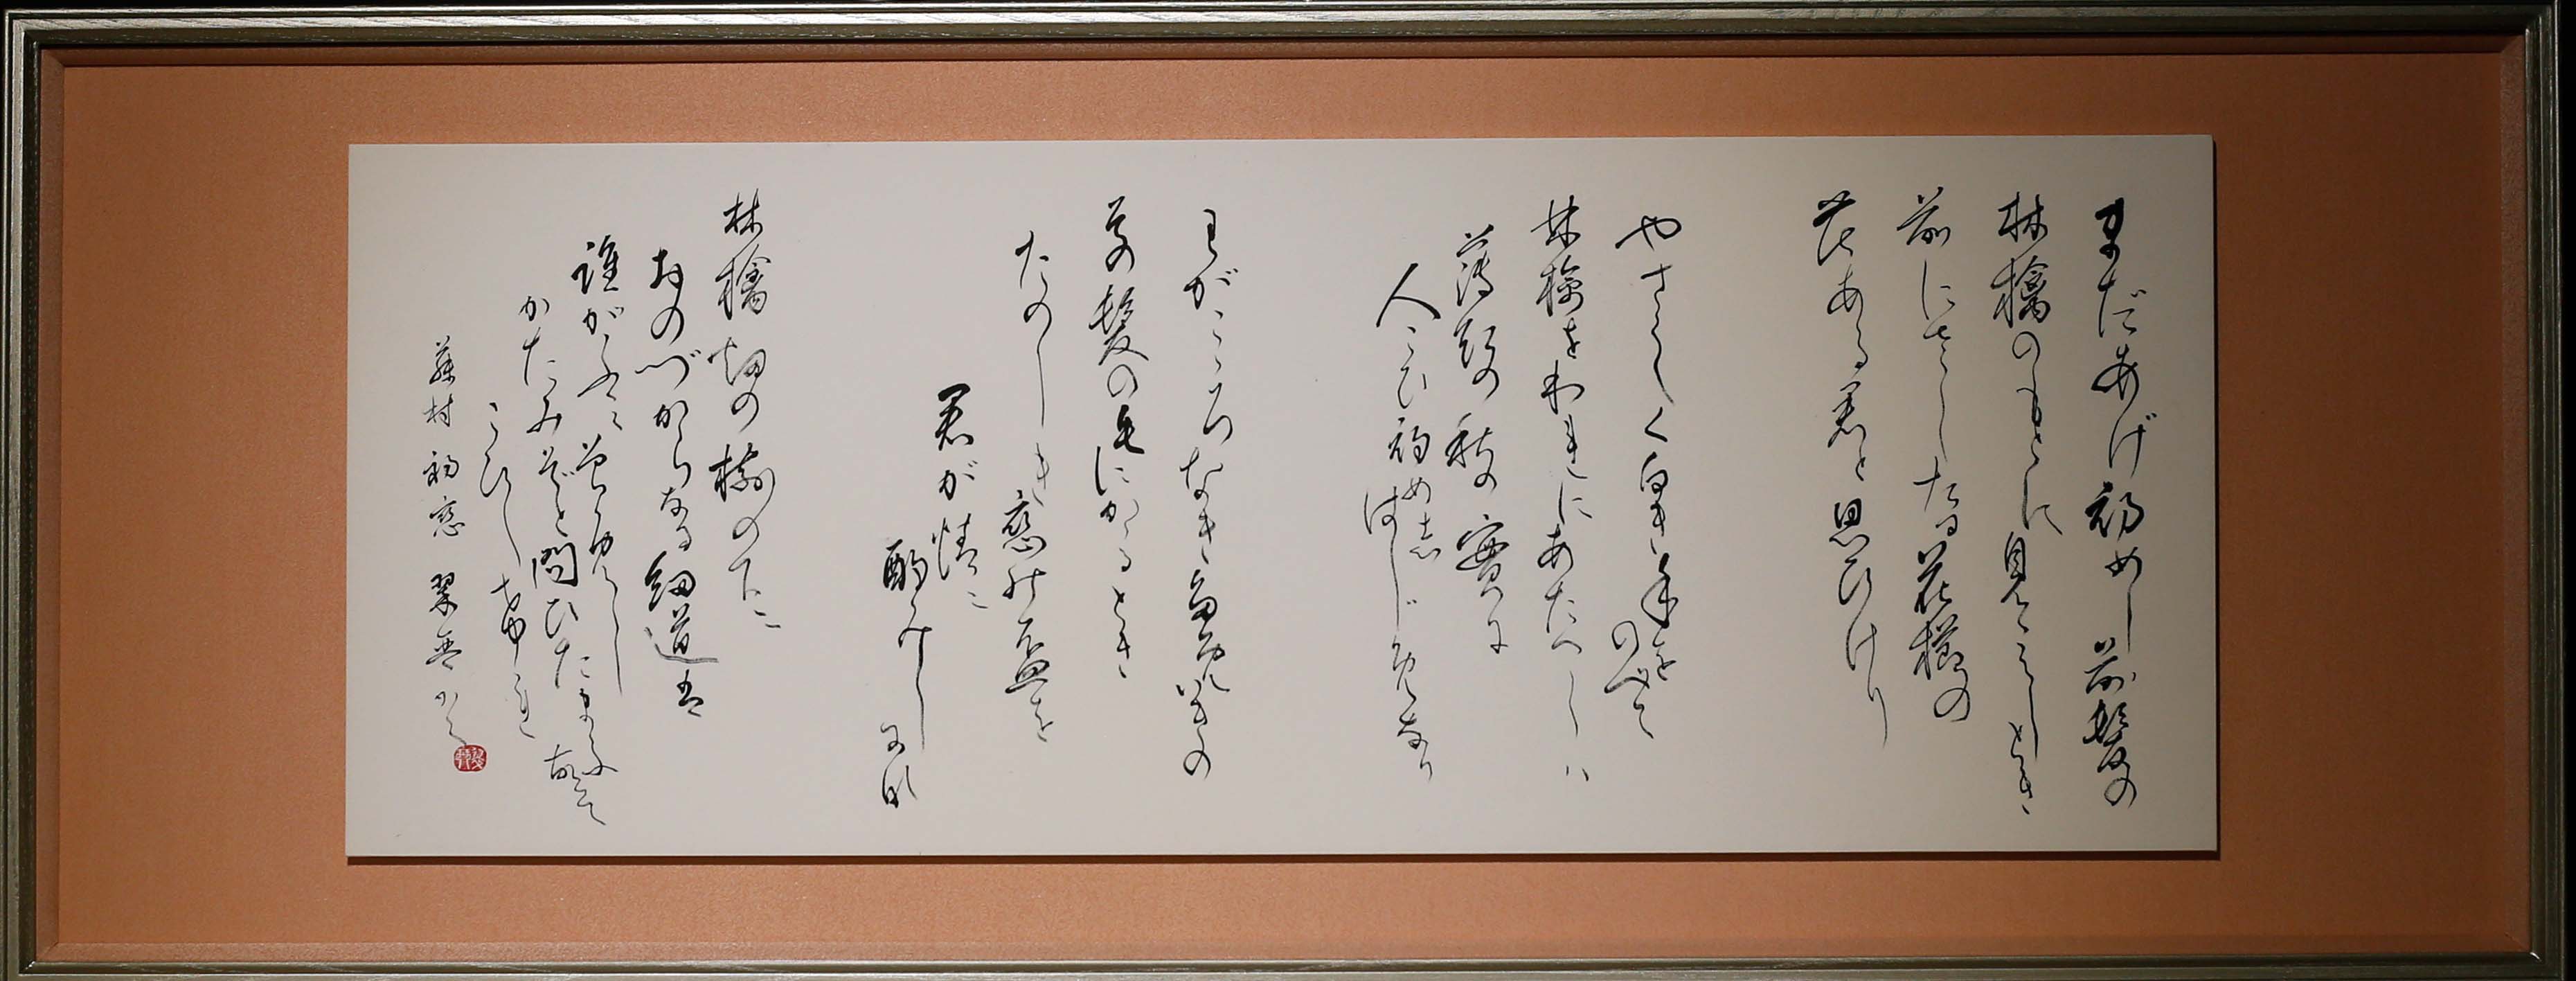 まだあげ初めし前髪の
林檎のもとに見えしとき
前にさしたる花櫛の
花ある君と思ひけり
やさしく白き手をのべて
林檎をわれにあたへしハ
薄紅の秋の實に
人こひ初めしはじめなり
わがこゝろなきためいきの
その髪の毛にかゝるとき
たのしき戀の盃を
君が情に
酌みしかな
林檎畑の樹の下に
おのづからなる細道は
誰がふみそめし
かたみぞと問ひたまふこそ
こひしけれ
藤村 初戀 翠